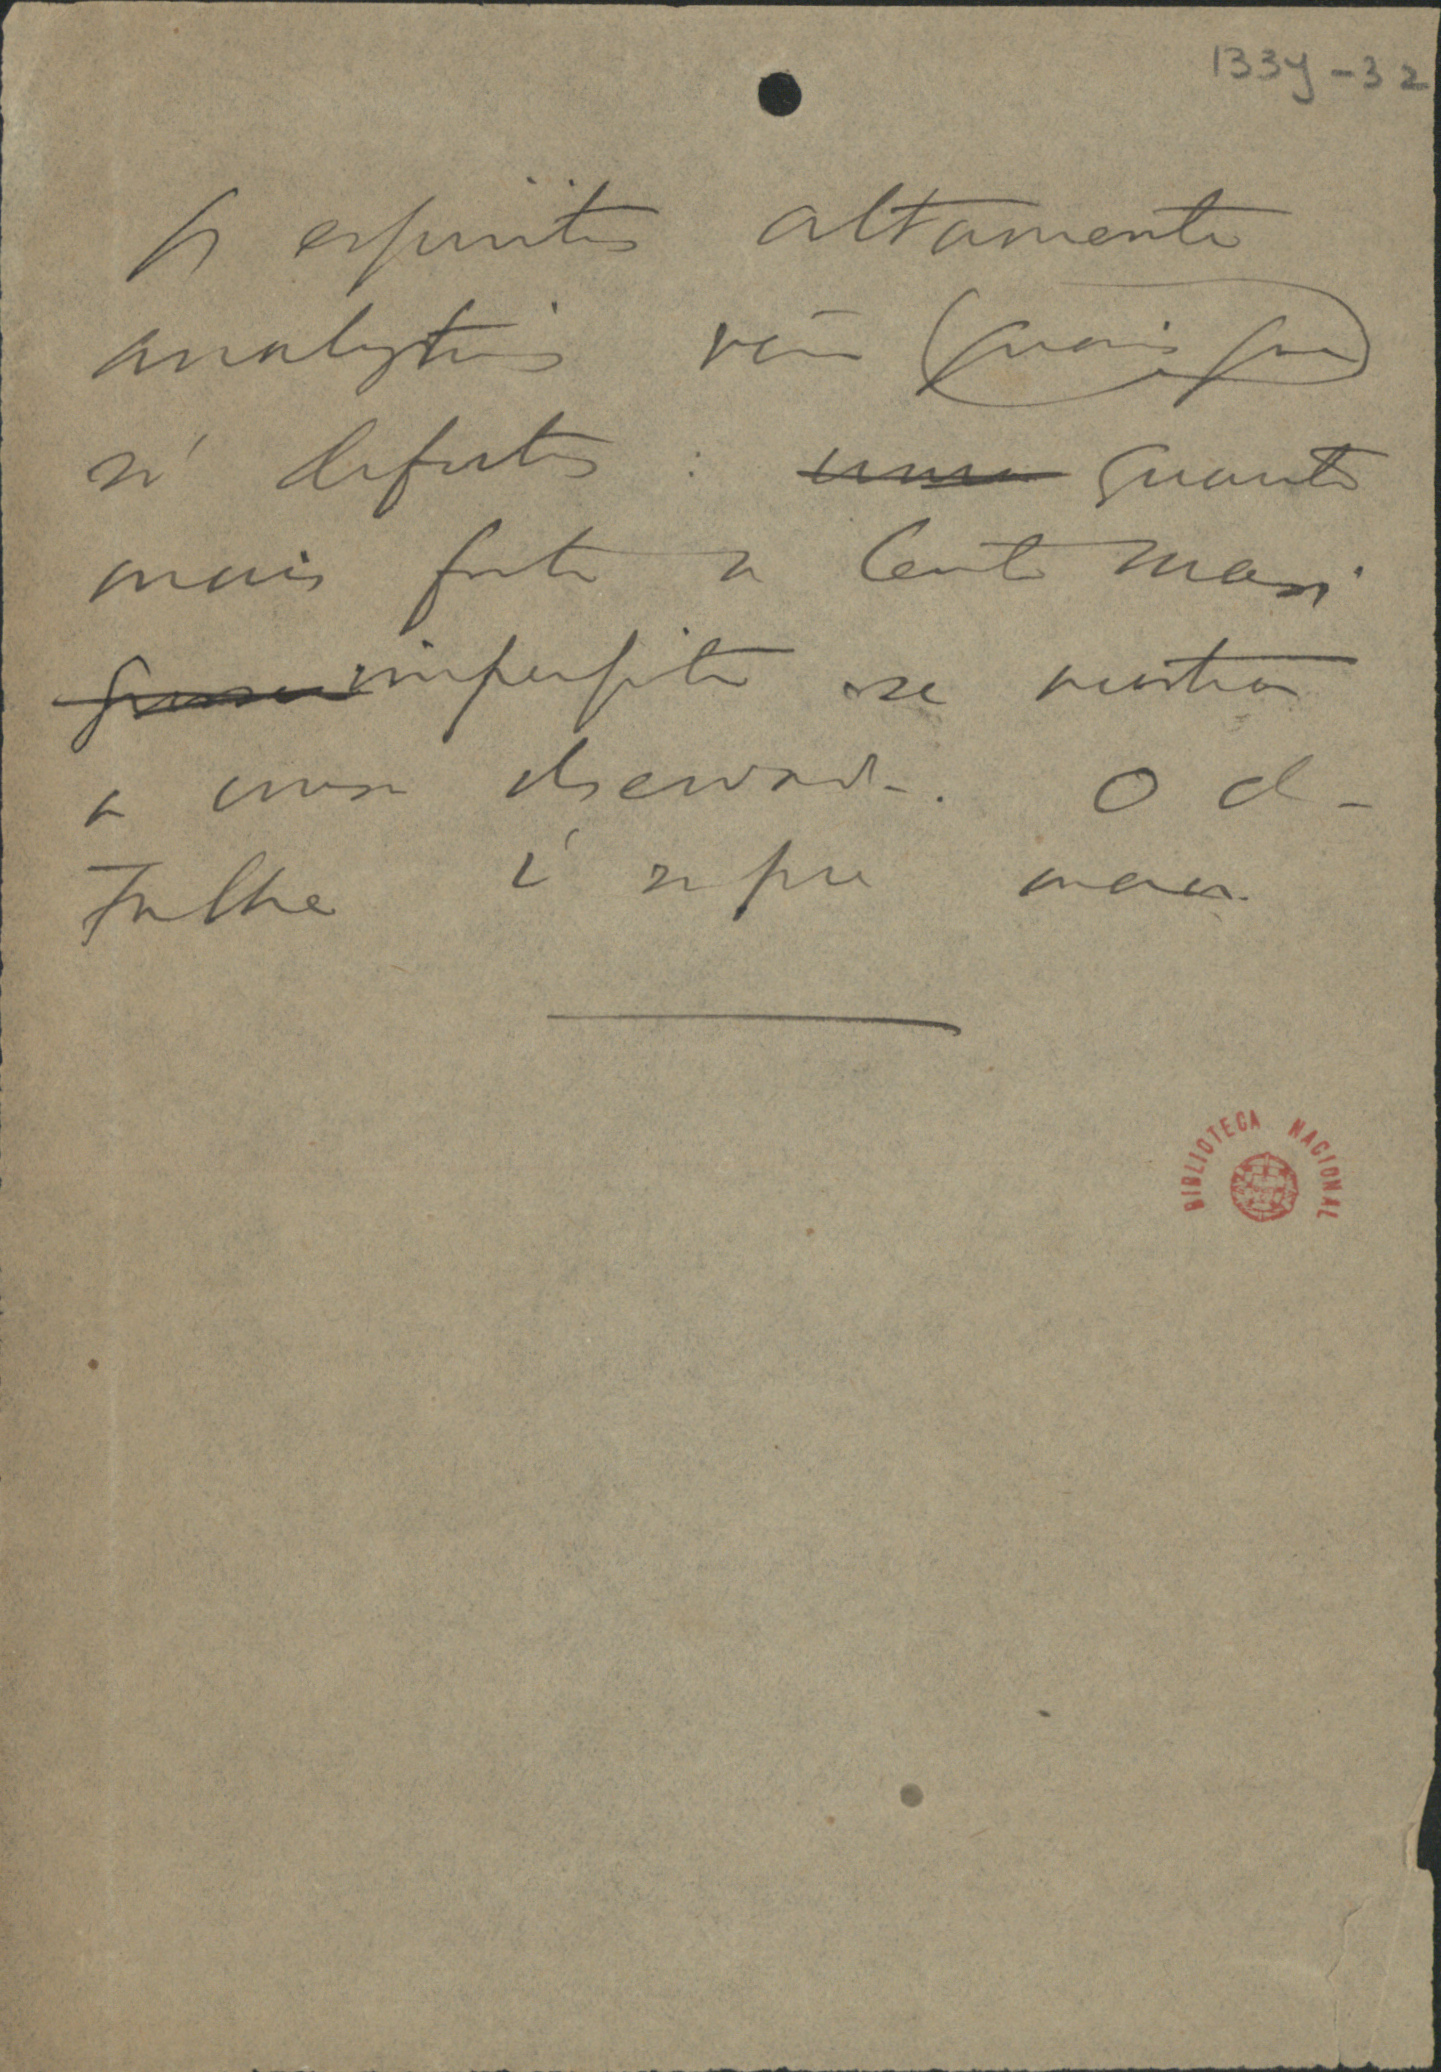 133y-32
Os espiritos altamente
analyticos vêm (quasi que)
só defeitos : uma quanto
mais forte a lente mais
imperfeita se mostra
a cousa observada. O de-
talhe é sempre mau.
BIBLIOTECA NACIONAL